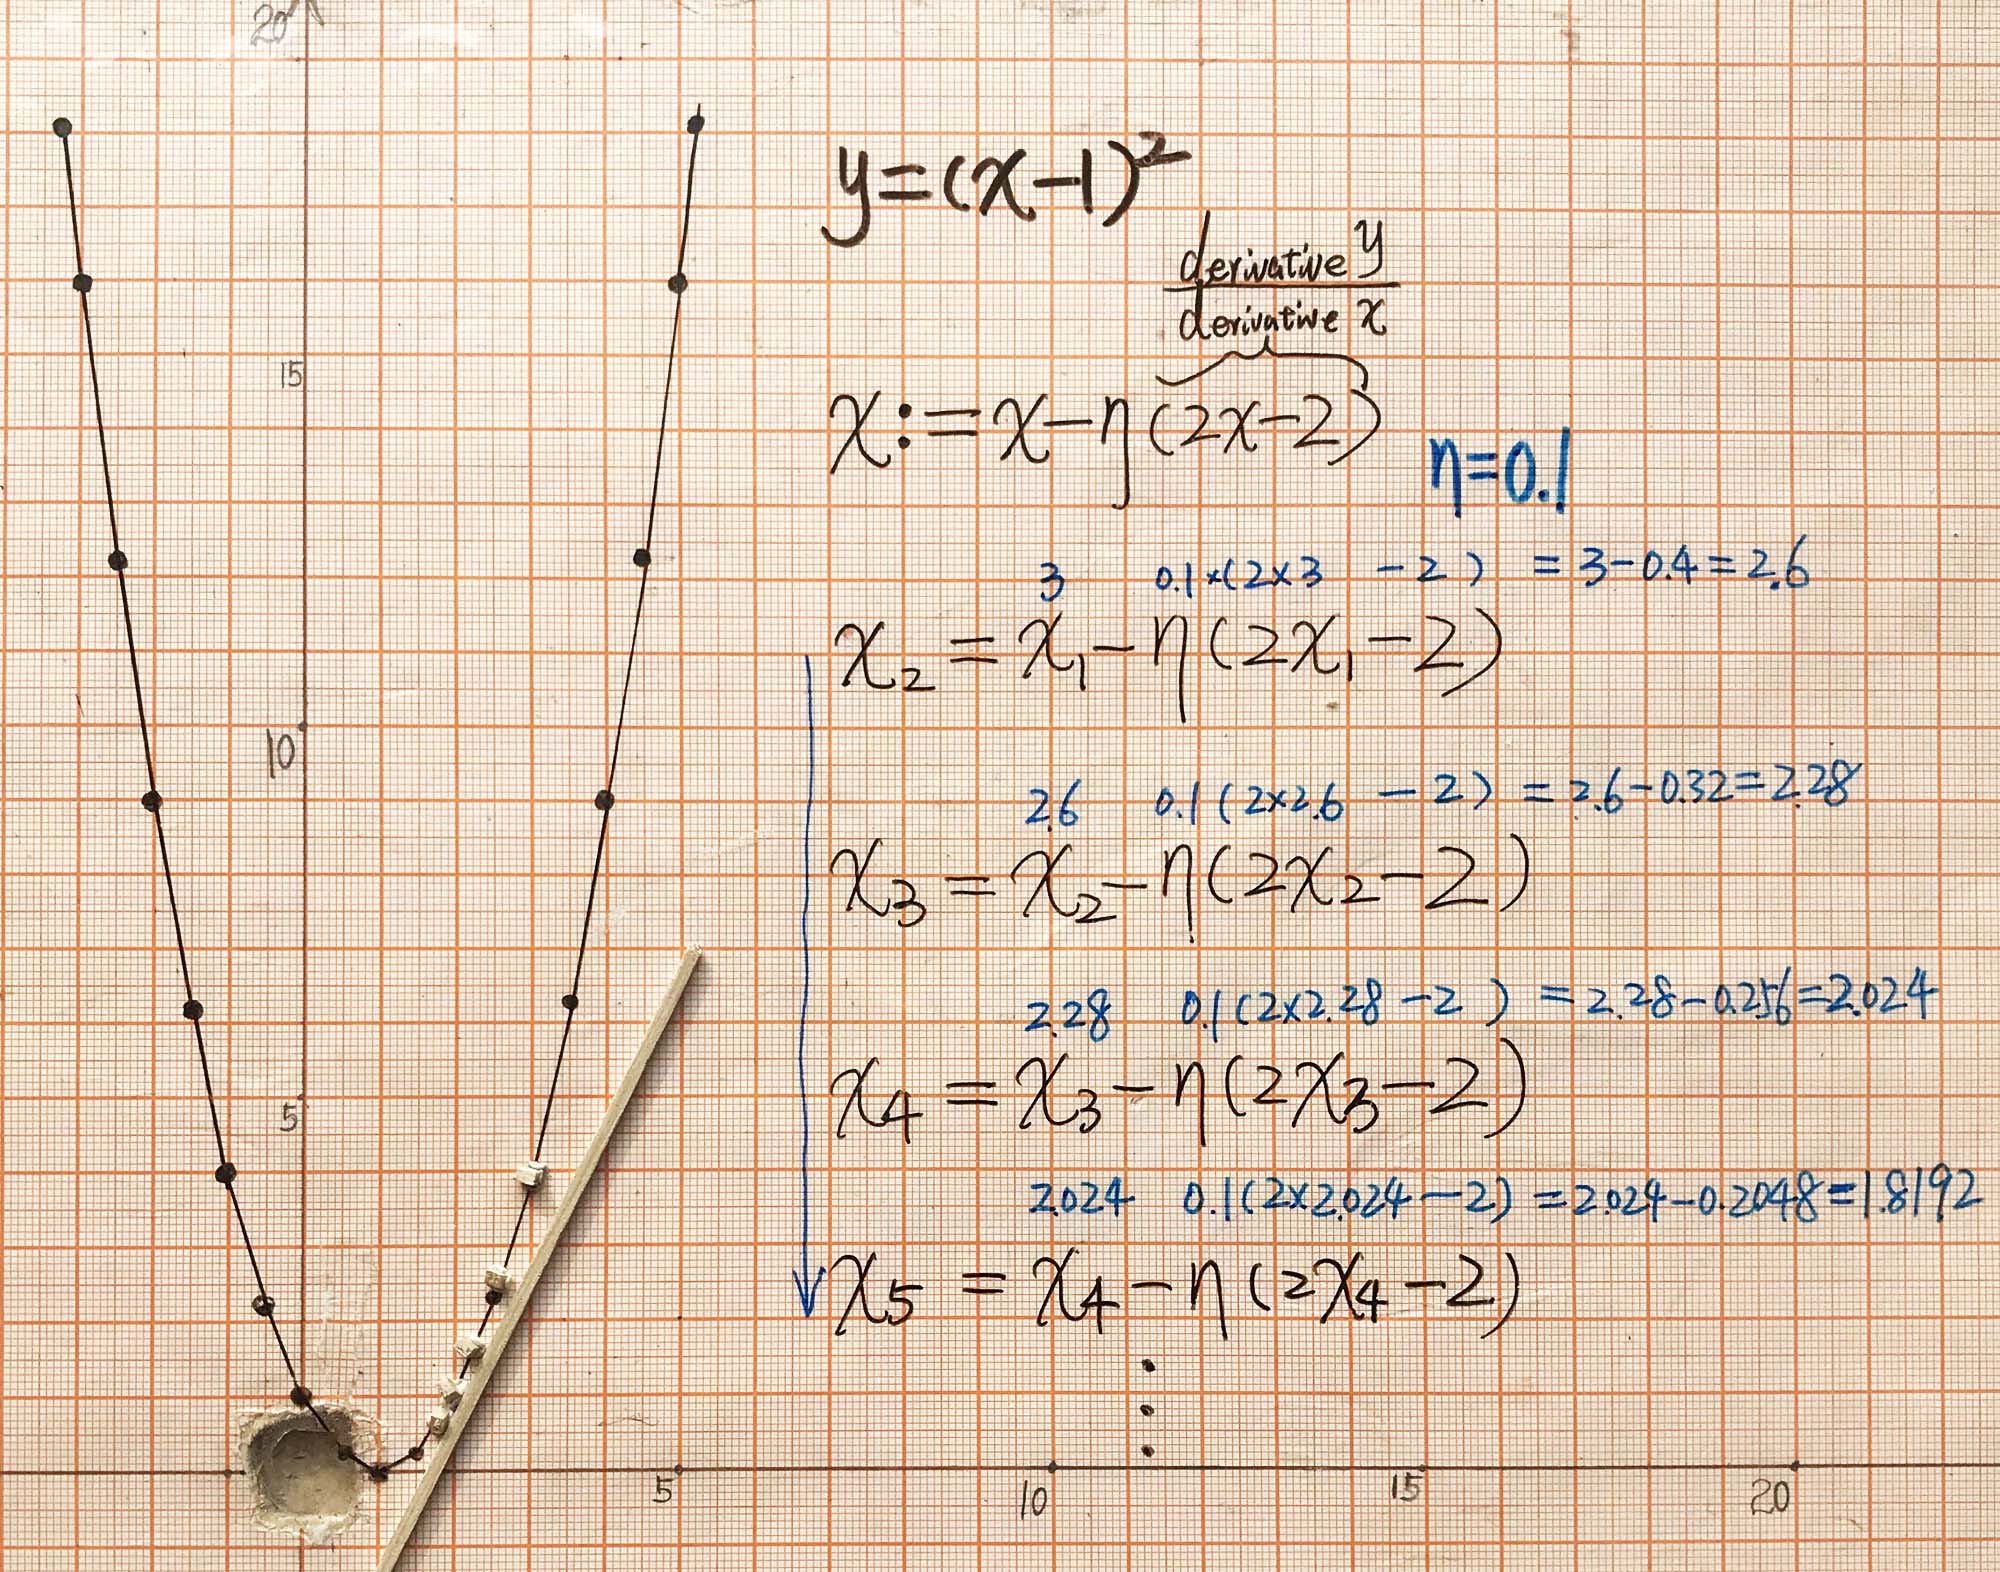 20
y=(x-1)²
derivative y
derivative x
15
x:=x-η(2x-2)
η=0.1
3 0.1×(2×3 -2) =3-0.4=2.6
x₂=x₁-η(2x₁-2)
10
2.6 0.1(2×2.6 -2) =2.6-0.32=2.28
x₃=x₂-η(2x₂-2)
2.28 0.1(2×2.28-2) =2.28-0.256=2.024
x₄=x₃-η(2x₃-2)
5
2.024 0.1(2×2.024-2) =2.024-0.2048=1.8192
x₅=x₄-η(2x₄-2)
5 10 15 20